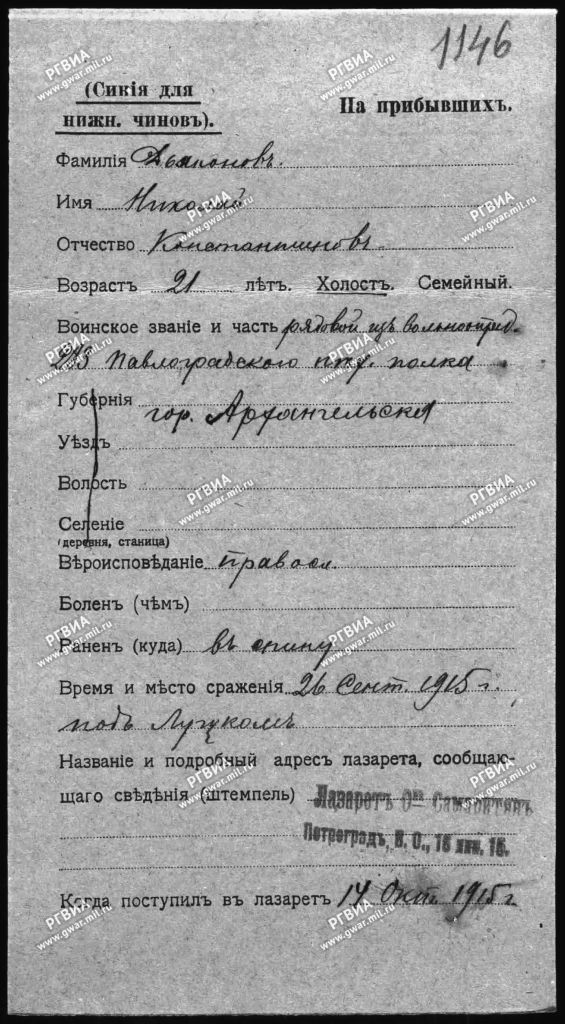 1146
(Сикія для
нижн. чиновъ).
На прибывшихъ.
Фамилія Дьяконовъ.
Имя Николай
Отчество Константиновъ
Возрастъ 21 лѣтъ. Холостъ. Семейный.
Воинское званіе и часть рядовой изъ вольноопред.
Павлоградского полка
Губернія гор. Архангельска
Уѣздъ
Волость
Селеніе
(деревня, станица)
Вѣроисповѣданіе правосл.
Боленъ (чѣмъ)
Раненъ (куда) въ спину
Время и мѣсто сраженія 26 Сент. 1915 г.
подъ Луцкомъ
Названіе и подробный адресъ лазарета, сообщаю-
щаго свѣдѣнія (штемпель) Лазаретъ О-ва Самаритянъ
Петроградъ, В. О., 15 лин. 15.
Когда поступилъ въ лазаретъ 14 Окт. 1915 г
РГВИА
www.gwar.mil.ru